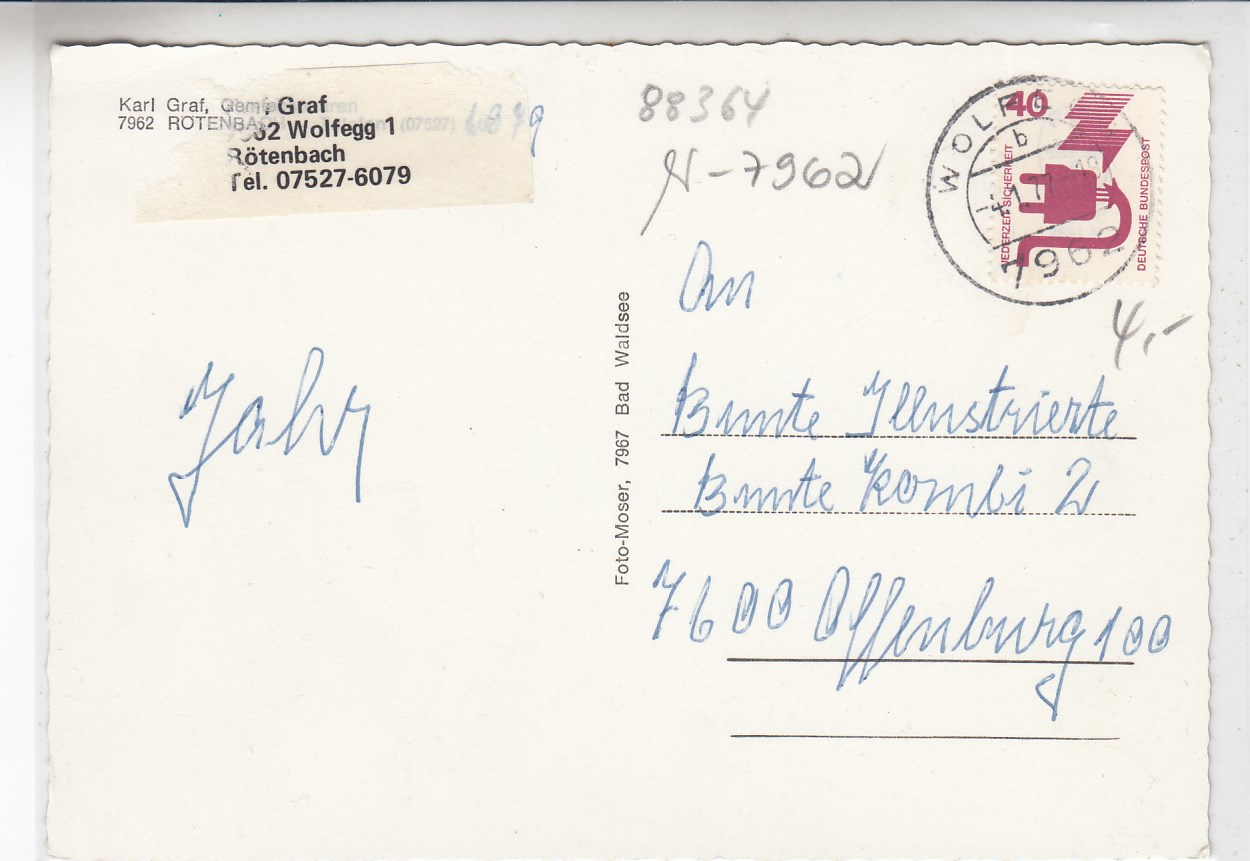 Karl Graf,
7962 RÖTENBA
Graf
62 Wolfegg 1
Rötenbach
Tel. 07527-6079
(07527)
88364
N-7962
WOLF
40
b
JEDERZEIT SICHERHEIT
DEUTSCHE BUNDESPOST
7962
4,-
An
Bunte Illustrierte
Bunte Kombi 2
7600 Offenburg 100
Jahr
Foto-Moser, 7967 Bad Waldsee